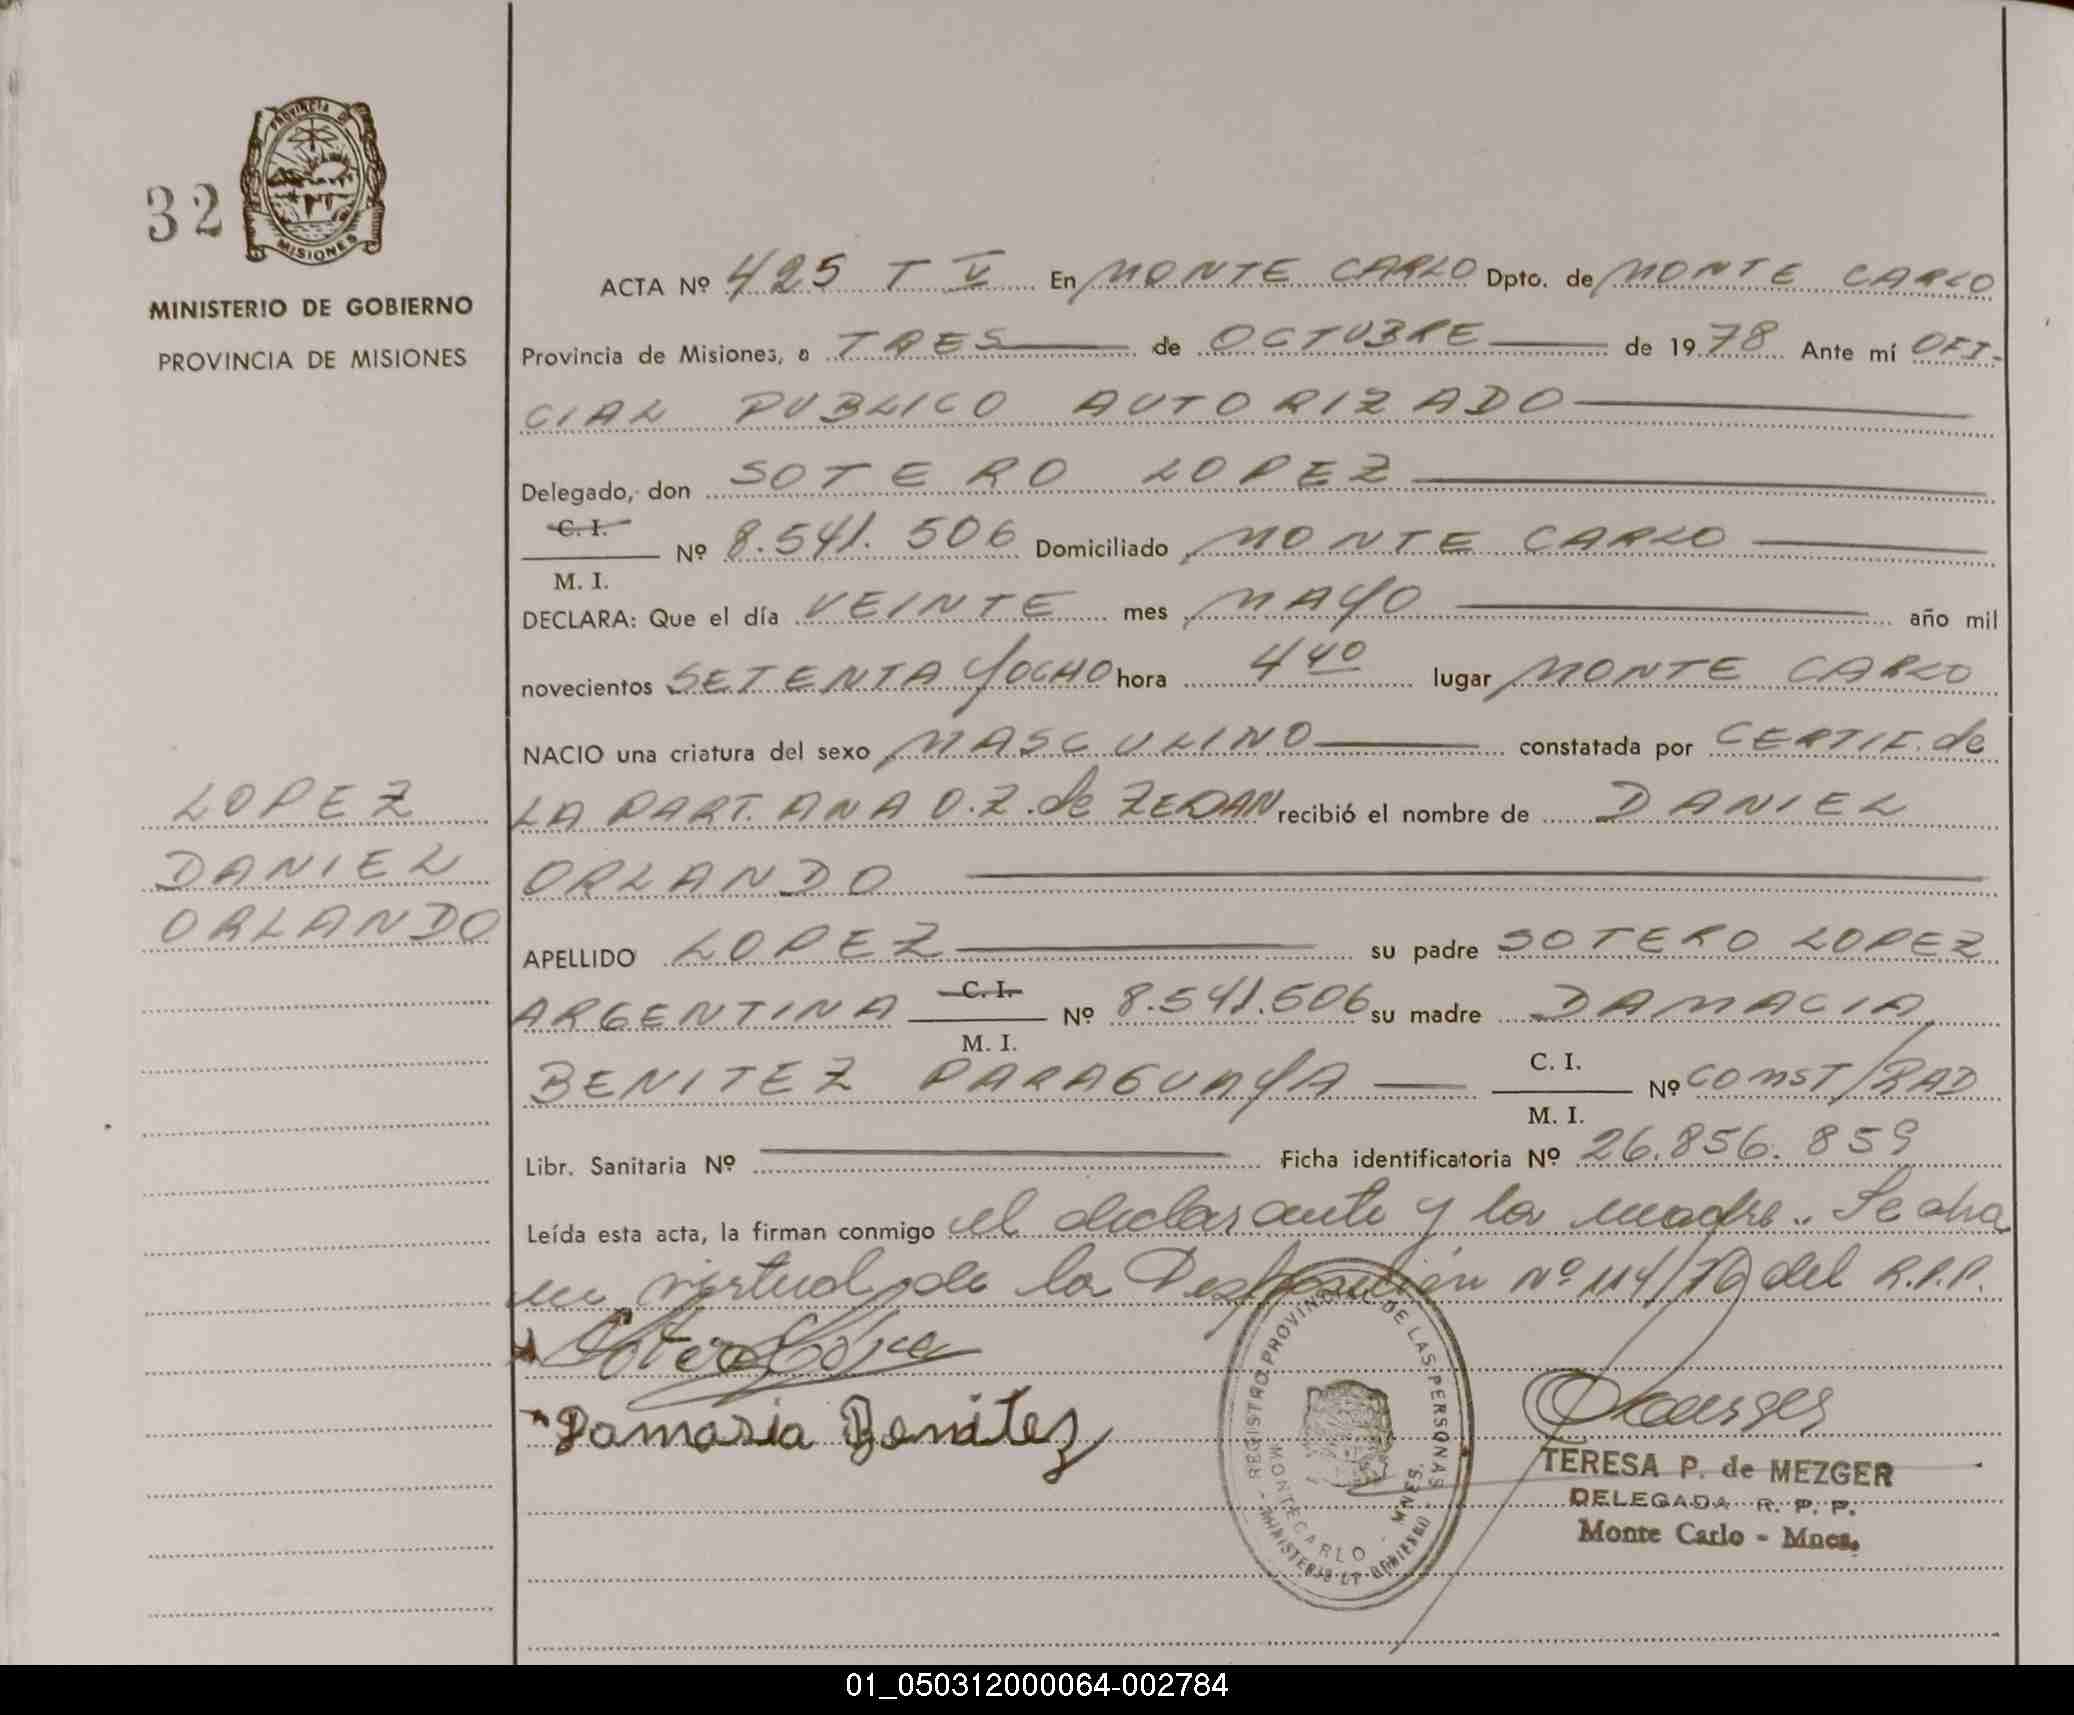 PROVINCIA DE
MISIONES
32
MINISTERIO DE GOBIERNO
PROVINCIA DE MISIONES
LOPEZ
DANIEL
ORLANDO
ACTA Nº 425 T V En MONTE CARLO Dpto. de MONTE CARLO
Provincia de Misiones, a TRES de OCTUBRE de 1978 Ante mí OFI-
CIAL PUBLICO AUTORIZADO
Delegado, don SOTERO LOPEZ
C. I.
Nº 8.541.506 Domiciliado MONTE CARLO
M. I.
DECLARA: Que el día VEINTE mes MAYO año mil
novecientos SETENTA Y OCHO hora 4 40 lugar MONTE CARLO
NACIO una criatura del sexo MASCULINO constatada por CERTIF. de
LA PART. ANA O. Z. de ZEDAN recibió el nombre de DANIEL
ORLANDO
APELLIDO LOPEZ su padre SOTERO LOPEZ
ARGENTINA C. I. Nº 8.541.506 su madre DAMACIA
M. I.
BENITEZ PARAGUAYA C. I. Nº CONST/RAD
M. I.
Libr. Sanitaria Nº Ficha identificatoria Nº 26.856.859
Leída esta acta, la firman conmigo el declarante y la madre. Se
en virtud de la Disposición Nº 114/70 del R.P.P.
Sotero López
Damasia Benitez
REGISTRO PROVINCIAL DE LAS PERSONAS
MONTECARLO - MNES.
MINISTERIO DE GOBIERNO
TERESA P. de MEZGER
DELEGADA R. P. P.
Monte Carlo - Mnes.
01_050312000064-002784